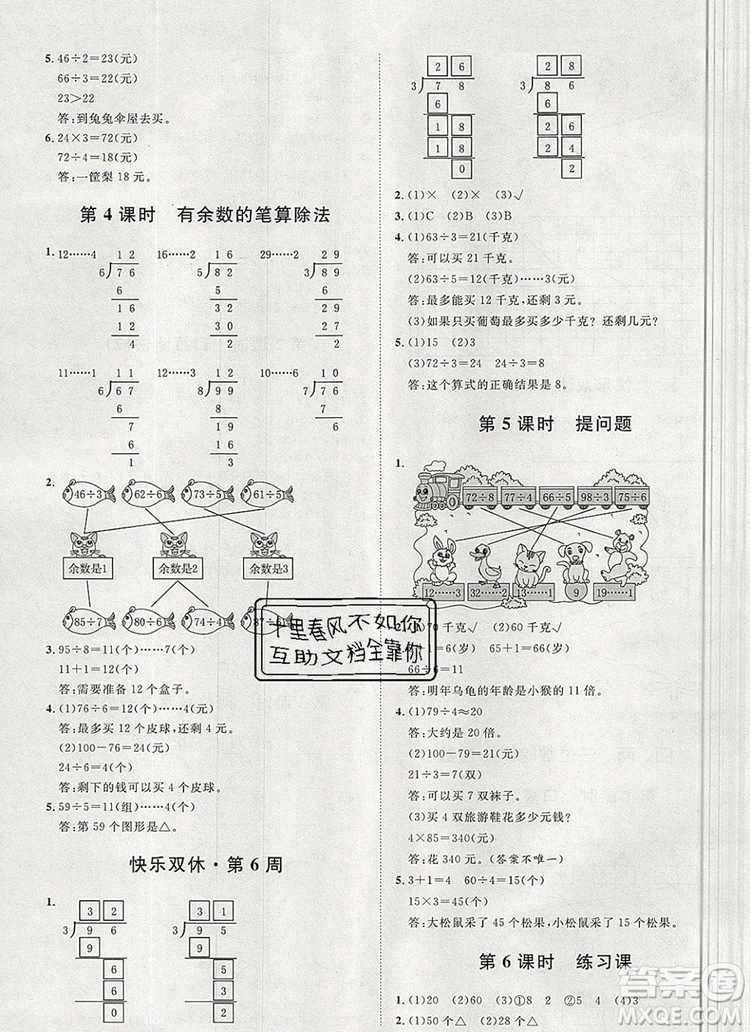 5. 46÷2=23(元)
66÷3=22(元)
23>22
答:到兔兔伞屋去买。
6. 24×3=72(元)
72÷4=18(元)
答:一筐梨18元。
第4课时 有余数的笔算除法
1. 12……4 16……2 29……2
12 16 29
6)76 5)82 3)89
6 5 6
16 32 29
12 30 27
4 2 2
11……1 12……3 16……3
11 12 16
6)67 8)99 6)99
6 8 6
7 19 39
6 16 36
1 3 3
2. 46÷3 50÷4 73÷5 61÷5
余数是1 余数是2 余数是3
85÷7 80÷6 63÷4 87÷6
3. 95÷9=10(个)……5(个)
11+1=12(个)
答:需要准备12个盒子。
4. (1)76÷6=12(个)……4(元)
答:最多买12个皮球,还剩4元。
(2)100-76=24(元)
24÷6=4(个)
答:剩下的钱可以买4个皮球。
5. 59÷5=11(组)……4(个)
答:第59个图形是△。
快乐双休·第6周
1. 32 16
3)96 6)96
9 6
6 36
6 36
0 0
26 28
3)78 3)86
6 6
18 26
18 24
0 2
2. (1)× (2)× (3)√
3. (1)C (2)B (3)D
4. (1)63÷3=21(千克)
答:可以买21千克。
(2)63÷5=12(千克)……3(元)
答:最多能买12千克,还剩3元。
(3)如果只买葡萄最多买多少千克?还剩几元?
5. (1)15 (2)3
(3)72÷3=24 24÷3=8
答:这个算式的正确结果是8。
第5课时 提问题
1.
72÷8 77÷4 66÷5 98÷3 75÷6
12……3 13……1 9 19……1 32……2
十里春风不如你
互助文档全靠你
70千克√ (2)60千克√
65+1=66(岁) 5+1=6(岁)
66÷6=11
答:明年乌龟的年龄是小猴的11倍。
4. (1)79÷4≈20
答:大约是20倍。
(2)100-79=21(元)
21÷3=7(双)
答:可以买7双袜子。
(3)买4双旅游鞋花多少元钱?
4×85=340(元)
答:花340元。(答案不唯一)
5. 3+1=4 60÷4=15(个)
15×3=45(个)
答:大松鼠采了45个松果,小松鼠采了15个松果。
第6课时 练习课
1. (1)20 (2)60 (3)①8 2 ②5 4 (4)3
2. (1)50个△ (2)28个○
答案圈
MXQE.COM